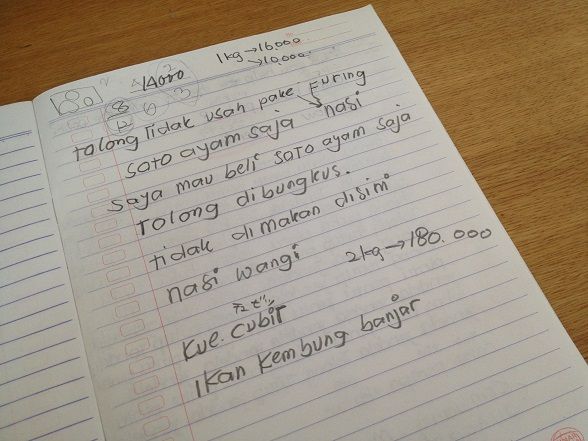 1kg→16.000
→10.000.
80
14000
tolong tidak usah pake Furing
nasi
soto ayam saja
saya mau beli soto ayam saja
tolong dibungkus.
tidak dimakan disini
nasi wangi
2kg→180.000
kue.cubit
Ikan kembung banjar